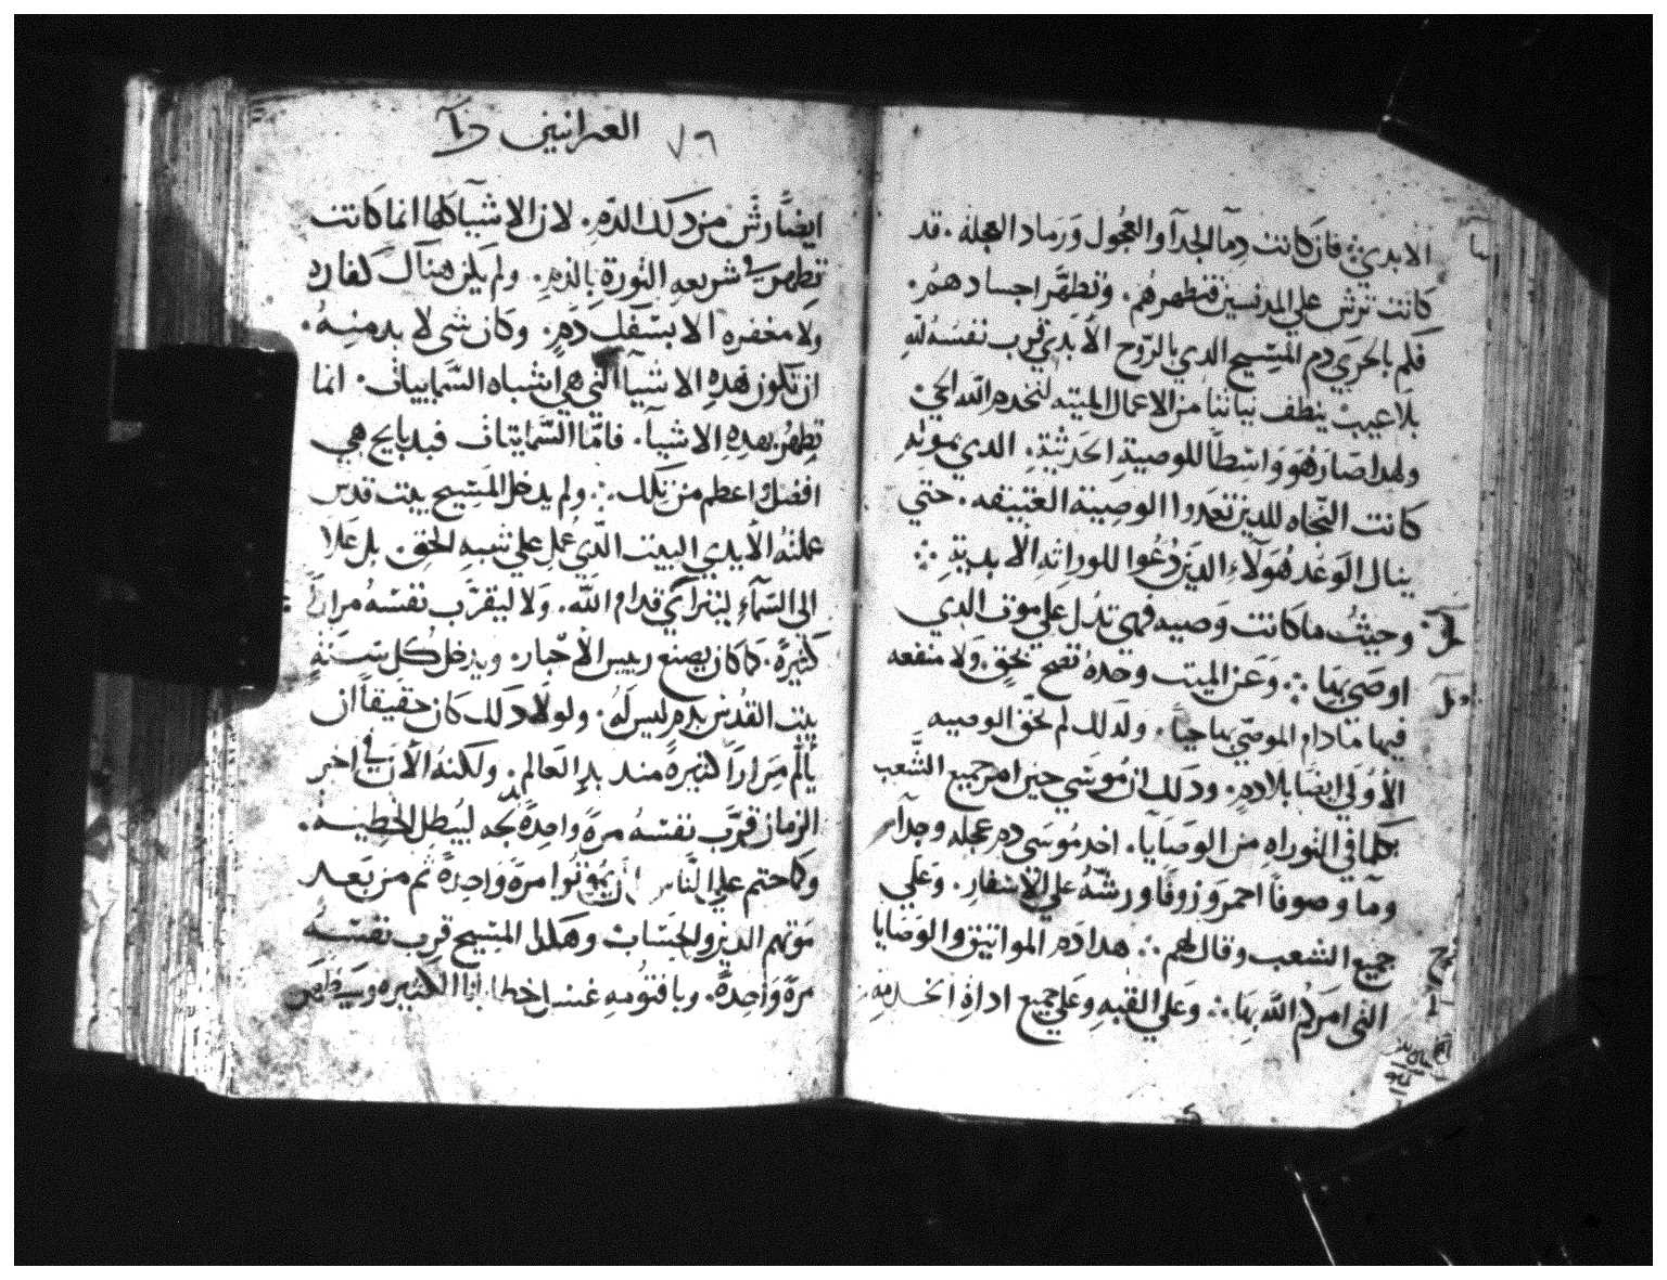 الابدي ∴ فان كانت دما الجدآ والعجول وَرَماد العجله . قد
كانت ترش علي المدنسين فتطهرهُم . وتُطهَّر اجسادهُم .
فكم بالحرَي دم المسِيح الدي بالرّوح الأبدي قرب نفسَهُ لله
بلاَ عيبْ ينظف نياتنا من الاعمال الميته لنخدم الله الحيّ
ولهدا صَارَ هُوَ وَاسِطاً للوصيةِ الحَديثةِ . الدي بموتهِ
كانت النّجاه للدين تعَدوا الوصيّة العتيقه . حتي
ينال الوَعْد هُوَلآءِ الدينَ دُعُوا للوراثهِ الأبديةِ ∴
وحيثُ ما كانت وَصيه فهي تدُل عَلي موت الدي
اوصَي بهَا ∴ وَعَن الميت وحدهُ تصح تحقِ . ولا منفعه
فيها مَا دام الموصّي بها حيّاً . ولدلك لم تحق الوصيه
الأوُلَي ايضًا بلاَ دمِ . ودلك ان مُوسَي حين امر جميع الشَّعب
بكلما في التوراهِ من الوصَايا . اخد مُوسَي دم عجله وجدآ
ومآ وصوفاً احمرَ وزوفَا ورشّهُ علي الأسفار . وَعَلي
جميع الشعب وقال لهم ∴ هدا دَم المواثيق والوصَايا
التي امرَكم اللّه بهَا ∴ وَعَلي القبهِ وَعَلي جميع اداةِ الخدمهِ
العبرانيين
٧٦
ايضاً رَش من دلك الدّمِ . لان الاشيآ كلها انما كانت
تطهر في شريعهِ التورة بالدم . ولم يكن هناك كفاره
ولا مغفره الا بسَفك دَمٍ . وكان شي لا بد منهُ .
ان تكون هَدهِ الاشيآ التي هي اشباه السَّماييات . انما
تطهرُ بهدِهِ الاشيآ . فامّا السَّماييات فبدبايح هي
افضل واعظم من تلك ∴ ولم يدخل المسِيح بيت قدس
عملتهُ الأيدي البيت الّدي عُمل علي شبهِ الحق . بل عَلا
الى السّمآءِ ليترآي قدام اللّه . وَلا ليقرّب نفسَهُ مراراً
كثيرهً . كما كان يصنع رييس الأحبار . ويدخل كُل سَنةٍ
بيت القدْس بدم ليس لهُ . ولولاَ دَلك كان حقيقاً ان
يألم مِرَاراً كثيرةً مند بدإ العَالم . ولكنهُ الأن في اخر
الزمان قرّب نفسَهُ مرةً وَاحِدةً ليُبطِل الخطِيه .
وكما حتم علي النَّاس ان يمُوتُوا مرةً وَاحِدةً ثم من بَعد
مَوتهم الدين والحسَاب وهَكدا المسِيح قرب نفسَهُ
مرةً وَاحِدةً . وباقنُومهِ غسل خطايانا الكثيره وسَيظهَر